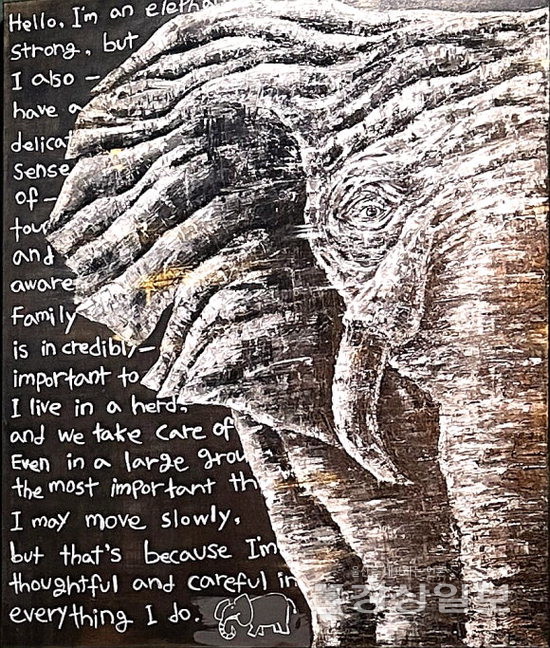 Hello, I'm an eleph
strong, but
I also -
have a
delicat
Sense
of -
tou
and
aware
Family
is incredibly -
important to
I live in a herd,
and we take care of
Even in a large grou
the most important th
I may move slowly,
but that's because I'm
thoughtful and careful in
everything I do.
경상일보